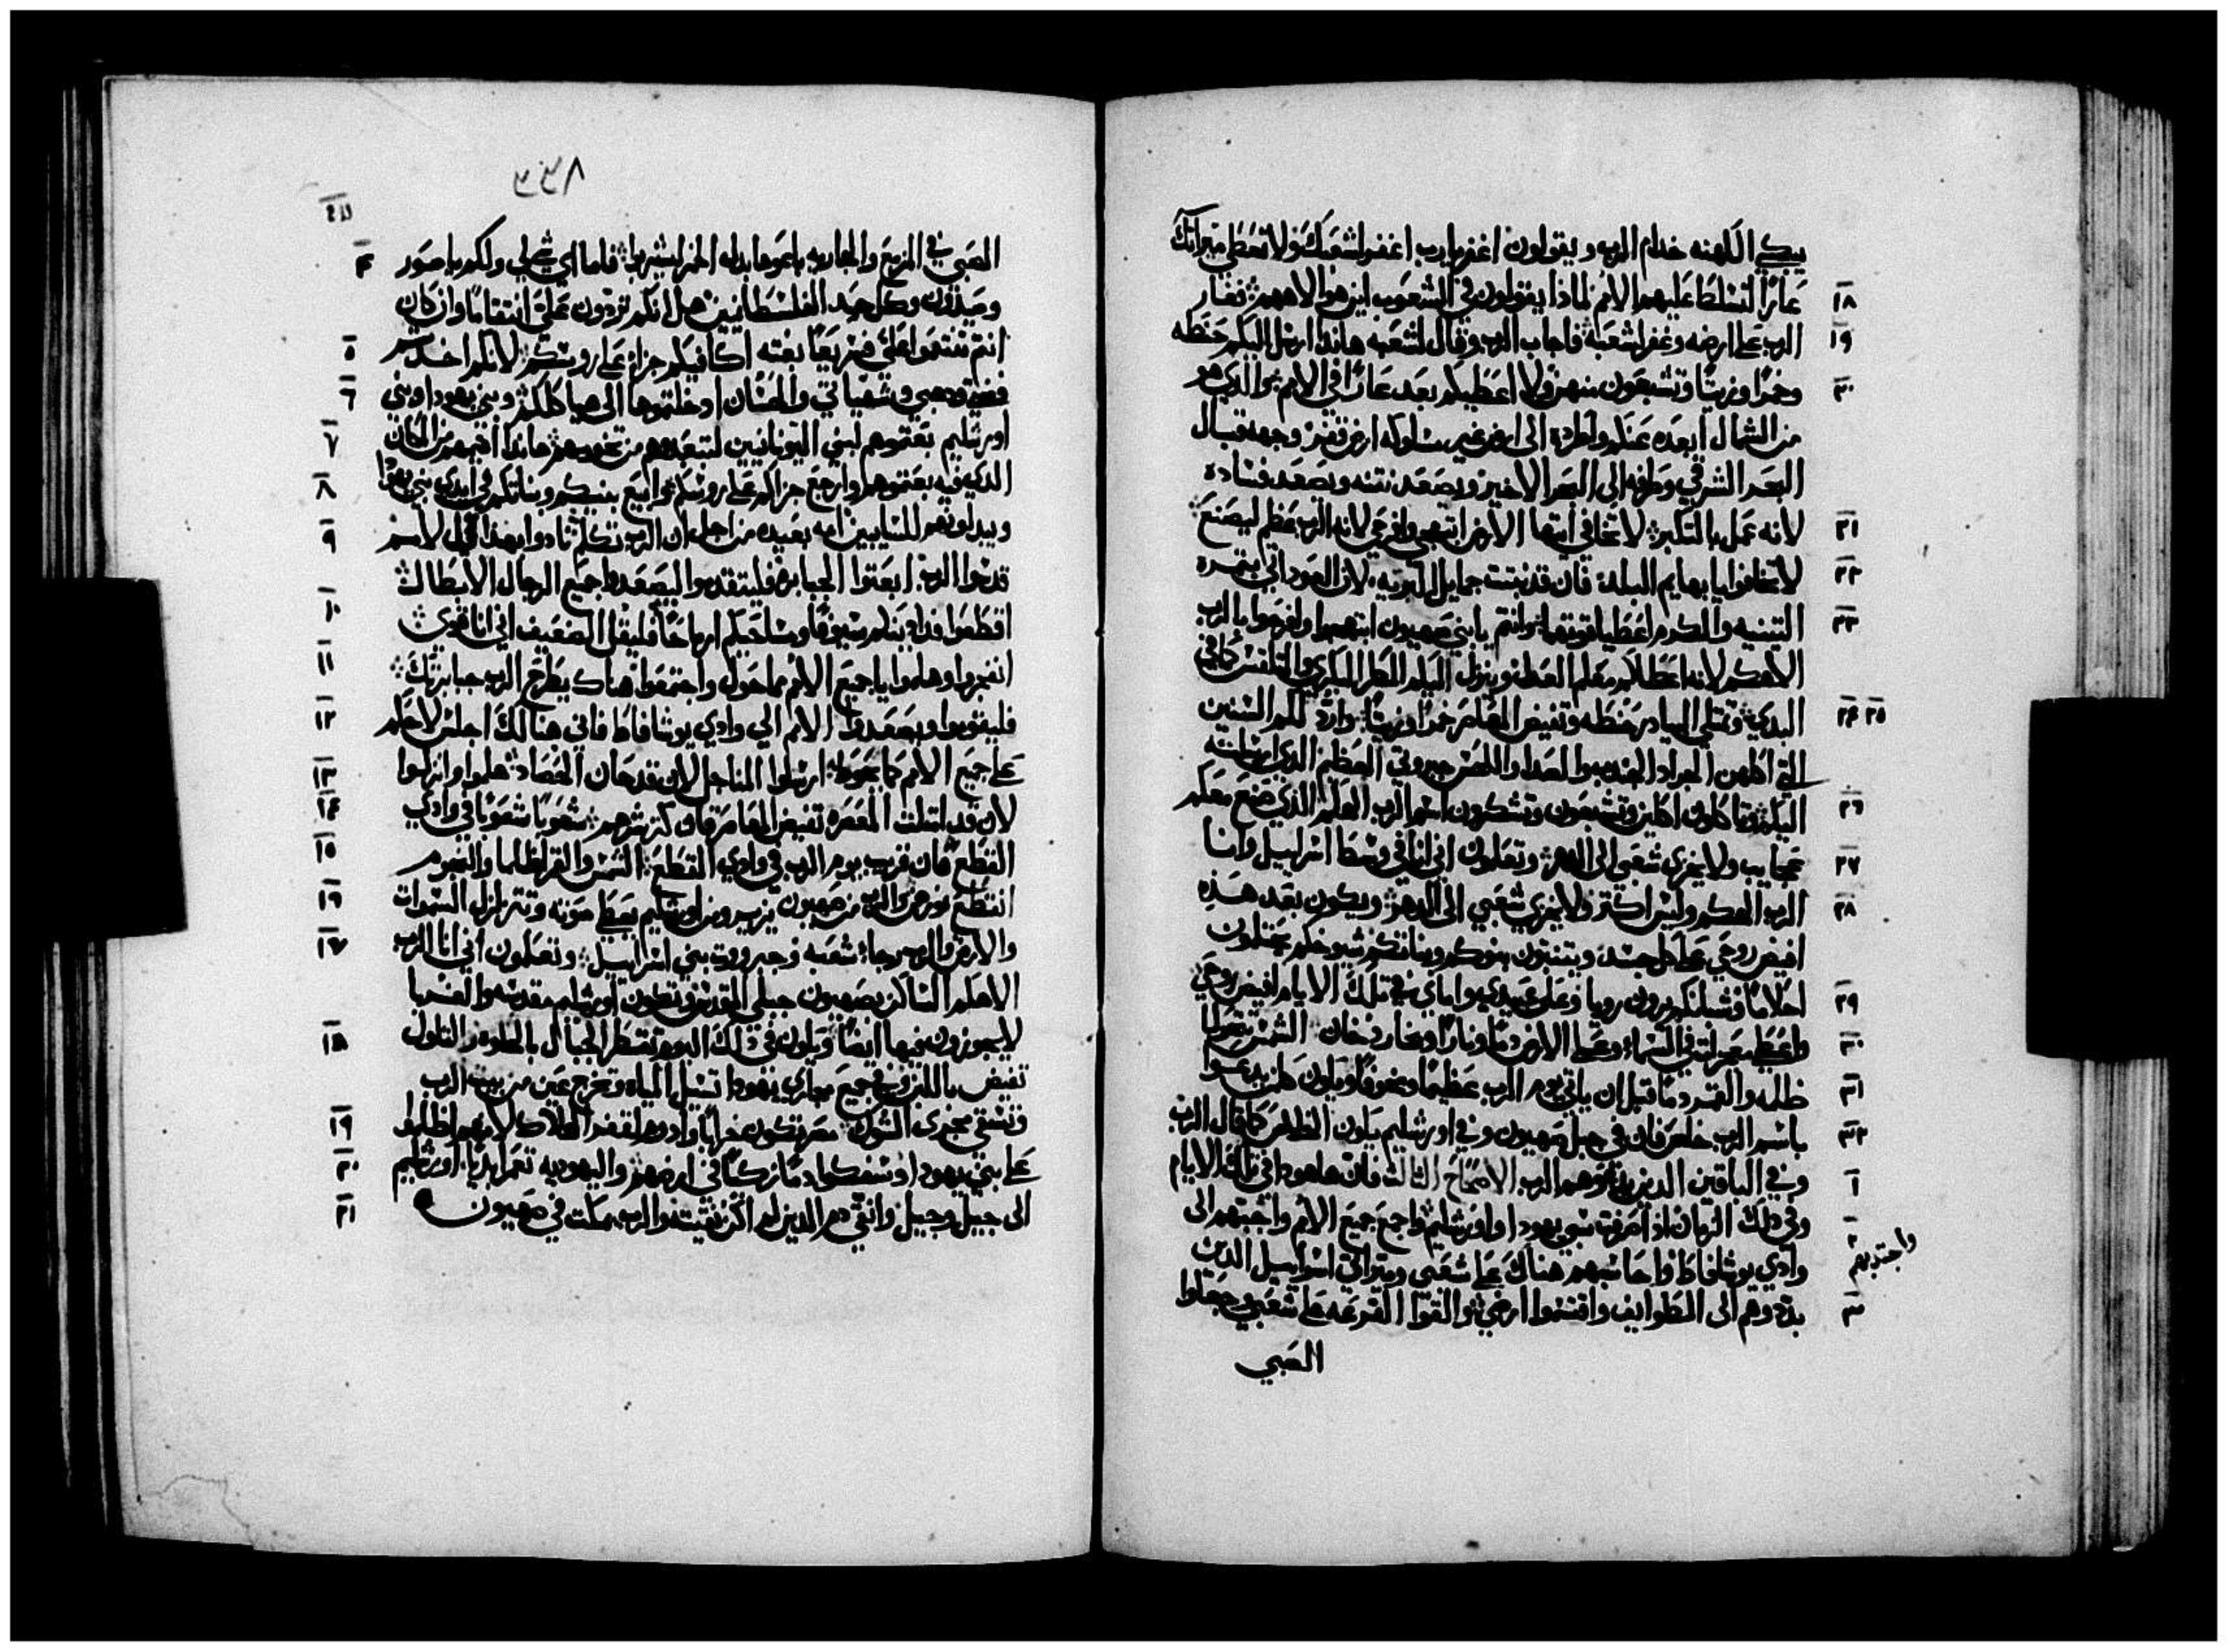 يبكي الكهنه خدام الرب ويقولون اغفر يا رب اغفر لشعبك ولا تعطي ميراتك
١٨ عارًا لتسلط عليهم الامم لماذا يقولون في الشعوب اين هو الاههم فغار
١٩ الرب على ارضه وغفر لشعبه فاجاب الرب وقال لشعبه هاندا ارسل اليكم حنطه
٢٠ وخمرًا وزيتًا وتشبعون منهم ولا اعطيكم بعد عارًا في الامم والذي هو
من الشمال ابعده عنكم واطرده الى ارض غير مسلوكه ارض قفر وجهه قبال
البحر الشرقي وطرفه الى البحر الاخير ويصعد نتنه ويصعد فساده
٢١ لانه عمل بالتكبر لا تخافي ايتها الارض ابتهجي وافرحي لانه الرب عظم ليصنع
٢٢ لا تخافوا يا بهايم البلد فان قد نبتت جمايل البريه لان العود اتي بتمره
٢٣ التينه والكرم اعطيا قوتهما وانتم يا بني صهيون ابتهجوا وافرحوا بالرب
الاهكم لانه اعطا لكم معلم العدل وينزل اليكم المطر المبكري واللقس كما في
٢٤ ٢٥ البدي وتمتلي البيادر حنطه وتفيض المعاصر خمرًا وزيتًا وارد لكم السنين
التي اكلهن الجراد الجندب والصدا واللمس جبروتي العظيم الذي ارسلته
٢٦ اليكم وتاكلون اكلين وتشبعون وتشكرون اسم الرب الهكم الذي صنع معكم
٢٧ عجايب ولا يخزى شعبي الى الدهر وتعلمون اني انا في وسط اسراييل وانا
٢٨ الرب الهكم وليس اكتر ولا يخزي شعبي الى الدهر ويكون بعد هذه
افيض روحي على كل جسد ويتنبون بنوكم وبناتكم شيوخكم يحتلمون
٢٩ احلامًا وشبانكم يرون رويا وعلى عبيدي واماي في تلك الايام افيض روحي
٣٠ واعطي معجزات في السماء وعلى الارض دمًا ونارًا وبخار دخان الشمس تتحول
٣١ ظلمه والقمر دمًا قبل ان ياتي يوم الرب عظيمًا ومخوفًا ويكون كلمن يدعوا
٣٢ باسم الرب خلص فان في جبل صهيون وفي اورشليم يكون الخلاص كما قال الرب
١ وفي الباقين الدين يدعوهم الرب الاصحاح الثالث فان هاهودا في تلك الايام
٢ وفي ذلك الزمان اذا صرفت سبي يهودا واورشليم واجمع جميع الامم واجتبهم الى
واجتذبهم
وادي يوشافاط واحاسبهم هناك على شعبي وميراتي اسراييل الدين
٣ بددوهم الى الطوايف واقتسموا ارضي والقوا القرعه على شعبي وجعلوا
الصبي
الصبي في المزبح والجاريه باعوها بدل الخمر ليشربوا فاما اي شي لي ولكم يا صور ٤
وصيدون وكل حد الفلسطانيين هل انكم تردون علي انتقامًا وان كان
انتم تنتقموا علي فسريعًا بغته اكافيكم جزاء على روسكم لانكم اخدتم ٥
فضتي ودهبي وشهياتي والحسان ادخلتموها الى هياكلكم وبني يهودا وبني ٦
اورشليم بعتموهم لبني اليونانيين لتبعدوهم من تخومهم هاندا اقيمهم من المكان ٧
الدي فيه بعتموهم وارجع جزاكم على روسكم وابيع بنيكم وبناتكم في ايدي بني يهودا ٨
ويبيعونهم للسبايين امه بعيده من اجل ان الرب تكلم نادوا بهذا في الامم ٩
قدسوا الحرب ابعتوا الجبابره فليتقدموا ليصعدوا جميع الرجال الابطال
اقطعوا فدادينكم سيوفًا ومساحيكم ارماحًا فليقل الضعيف اني انا قوي ١٠
انفجروا وهلموا يا جميع الامم مما حول واجتمعوا هناك يطرح الرب جبابرتك ١١
فليقوموا ويصعدوا الامم الي وادي يوشافاط فاني هنالك اجلس لاحكم ١٢
على جميع الامم كما حوط ارسلوا المناجل لان قد حان الحصاد هلموا وانزلوا ١٣
لان قد امتلت المعصره تفيض المعاصر فان كتر شرهم شعوبًا شعوبًا في وادي ١٤
القطع فان قرب يوم الرب في وادي القطع الشمس والقمر اظلما والنجوم ١٥
انقطع نورهن والرب من صهيون يزير ومن اورشليم يعطي صوته وتتزلزل السموات ١٦
والارض والرب رجاء شعبه وجبروت بني اسراييل وتعلمون اني انا الرب ١٧
الاهكم الساكن بصهيون جبلي القدس وتكون اورشليم مقدسه والغربا
لا يجوزون فيها ايضًا ويكون في ذلك اليوم تقطر الجبال بالحلاوه والتلول ١٨
تفيض باللبن وفي جميع مجاري يهودا تسيل المياه وتخرج عين من بيت الرب
وتسقي مجزى الشوك مصر تكون خرابًا وادوم لقفر الهلاك لانهم اظلموا ١٩
على بني يهودا وسفكوا دمًا زكيًا في ارضهم واليهوديه تعمر ابديًا واورشليم ٢٠
الى جيل وجيل وانقي دمر الدين لم اكن نقيته والرب يسكت في صهيون ٢١